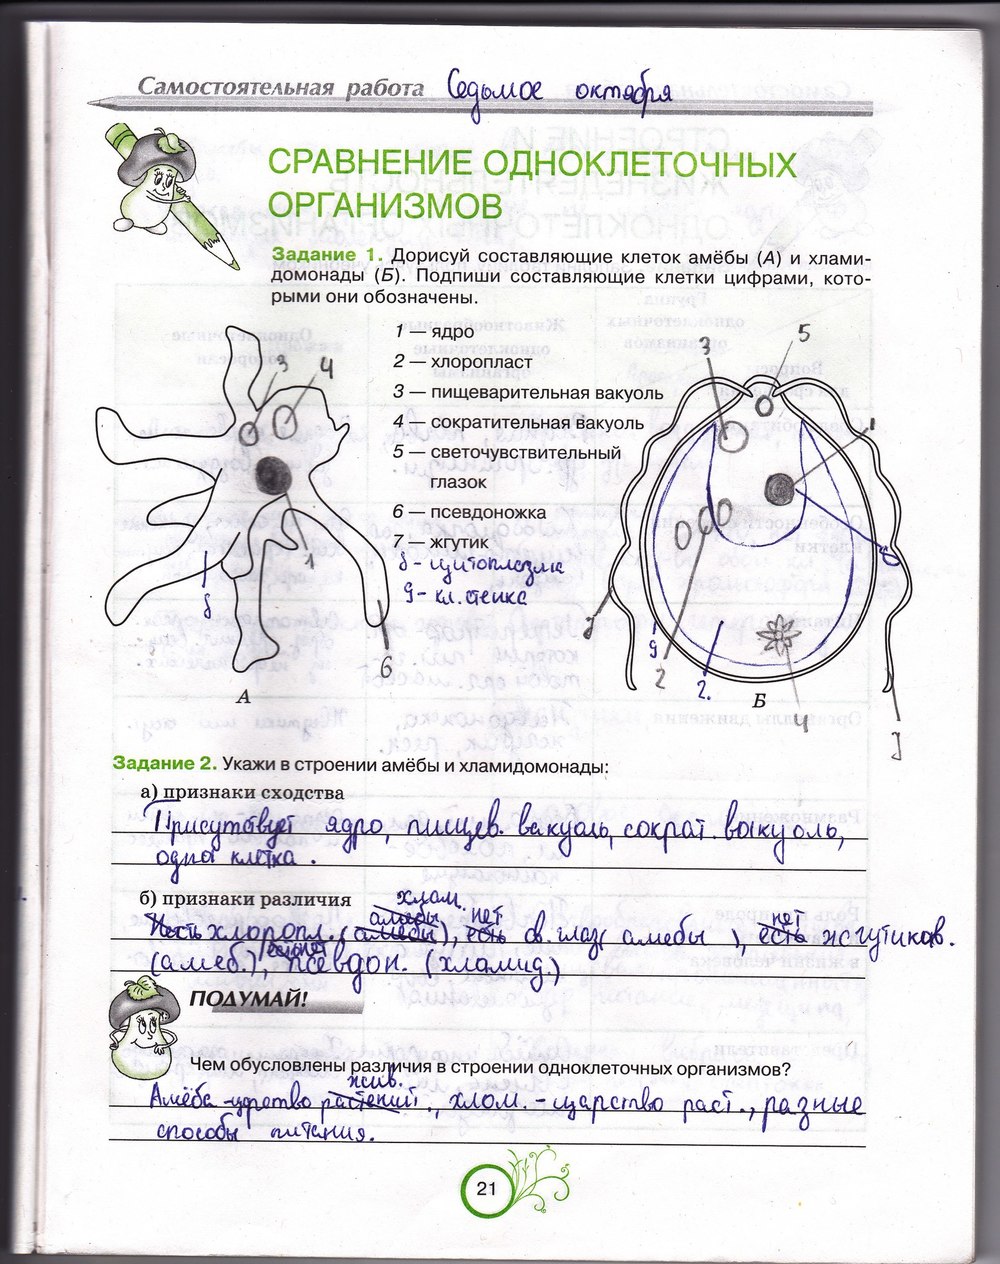 Самостоятельная работа Седьмое октября
СРАВНЕНИЕ ОДНОКЛЕТОЧНЫХ
ОРГАНИЗМОВ
Задание 1. Дорисуй составляющие клеток амёбы (А) и хлами-
домонады (Б). Подпиши составляющие клетки цифрами, кото-
рыми они обозначены.
1 — ядро
2 — хлоропласт
3 — пищеварительная вакуоль
4 — сократительная вакуоль
5 — светочувствительный
глазок
6 — псевдоножка
7 — жгутик
8 - цитоплазма
9 - кл. стенка
3 4
1
8
6
А
3 5
1
8
7
9 2 2.
4
7
Б
Задание 2. Укажи в строении амёбы и хламидомонады:
а) признаки сходства
Присутствует ядро, пищев. вакуоль, сократ. вакуоль,
одна клетка.
б) признаки различия
хлам.
амебы нет нет
хлоропл. (амебы), есть св. глаз( амебы ), есть жгутиков.
(амеб.), псевдон. (хламид.)
ПОДУМАЙ!
Чем обусловлены различия в строении одноклеточных организмов?
жив.
Амёба - царство растений., хлам. - царство раст., разные
способы питания.
21